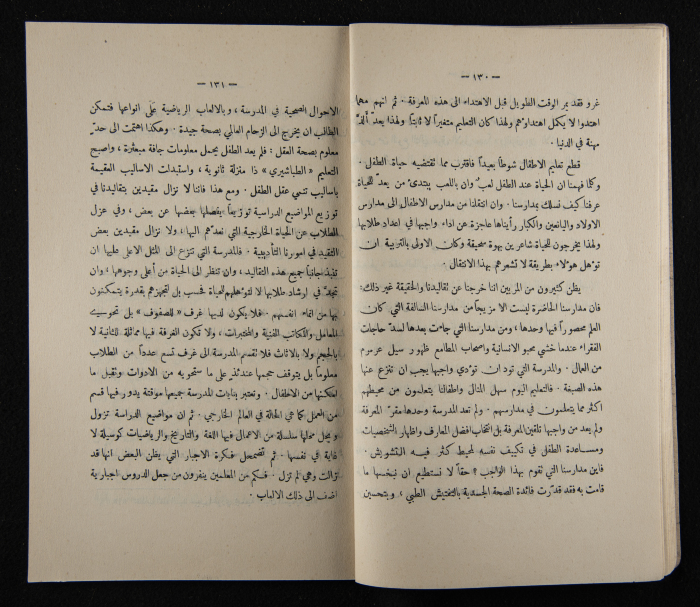 — ١٣٠ —
غرو فقد يمر الوقت الطويل قبل الاهتداء الى هذه المعرفة . ثم انهم مهما
اهتدوا لا يكمل اهتداؤهم ولهذا كان التعليم متغيراً لا ثابتاً ولهذا يعدّ ألذّ
مهنة في الدنيا .
قطع تعليم الاطفال شوطاً بعيداً فاقترب مما تقتضيه حياة الطفل .
وكما فهمنا ان الحياة عند الطفل لعب وان باللعب يبتدئ من يعدّ للحياة
عرفنا كيف نسلك بمدارسنا . وان انتقلنا من مدارس الاطفال الى مدارس
الاولاد واليافعين والكبار رأيناها عاجزة عن اداء واجبها في اعداد طلابها
ولهذا يخرجون للحياة شاعرين بهوة سحيقة وكان الاولى بالتربية ان
تؤهل هؤلاء بطريقة لا تشعرهم بهذا الانتقال .
يظن كثيرون من المربين اننا خرجنا عن تقاليدنا والحقيقة غير ذلك :
فان مدارسنا الحاضرة ليست الا مزيجاً من مدارسنا السالفة التي كان
العلم محصوراً فيها وحدها ، ومن مدارسنا التي جاءت بعدها لسدّ حاجات
الفقراء عندما خشي محبو الانسانية واصحاب المطامع ظهور سيل عرمرم
من العمال . والمدرسة التي تود ان تؤدي واجبها يجب ان تنزع عنها
هذه الصبغة . فالتعليم اليوم سهل المنال واطفالنا يتعلمون من محيطهم
اكثر مما يتعلمون في مدارسهم . ولم تعد المدرسة وحدها مقرّ المعرفة
ولم يعد من واجبها تلقين المعرفة بل انتخاب افضل المعارف واظهار الشخصيات
ومساعدة الطفل في تكييف نفسه لمحيط كثر فيه التشويش .
فاين مدارسنا التي تقوم بهذا الواجب ؟ حقاً لا نستطيع ان نبخسها ما
قامت به فقد قدّرت فائدة الصحة الجسدية بالتفتيش الطبي ، وبتحسين
— ١٣١ —
الاحوال الصحية في المدرسة ، وبالالعاب الرياضية على انواعها فتمكن
الطالب ان يخرج الى الزحام العالي بصحة جيدة . وهكذا اهتمت الى حدّ
معلوم بصحة العقل : فلم يعد الطفل يحمل معلومات جافة مبعثرة ، واصبح
التعليم « الطباشيري » ذا منزلة ثانوية ، واستبدلت الاساليب العقيمة
باساليب تنمي عقل الطفل . ومع هذا فاننا لا نزال مقيدين بتقاليدنا في
توزيع المواضيع الدراسية توزيعاً يفصلها بعضها عن بعض ، وفي عزل
الطلاب عن الحياة الخارجية التي نعدّهم اليها ، ولا نزال مقيدين بعض
التقيد في امورنا التأديبية . فالمدرسة التي تنزع الى المثل الاعلى عليها ان
تنبذ جانباً جميع هذه التقاليد ، وان تنظر الى الحياة من أعلى وجوهها ، وان
تجدّ في ارشاد طلابها لا لتؤهلهم للحياة فحسب بل لتجهزهم بقدرة يتمكنون
بها من انماء انفسهم . فلا يكون لديها غرف « للصفوف » بل تحويه
المعامل والمكاتب الفنية والمختبرات ، ولا تكون الغرفة فيها مماثلة للثانية لا
بالحجم ولا بالاثاث فلا تقسم المدرسة الى غرف تسع عدداً من الطلاب
معلوماً بل يتوقف حجمها عندئذٍ على ما ستحويه من الادوات وتقبل ما
امكنها من الاطفال . وتعتبر بنايات المدرسة جميعها مؤقتة يدور فيها قسم
من العمل كما هي الحالة في العالم الخارجي . ثم ان مواضيع الدراسة تزول
ويحل محلها سلسلة من الاعمال فيها اللغة والتاريخ والرياضيات كوسيلة لا
غاية في نفسها . ثم تضمحل فكرة الاجبار التي يظن البعض انها قد
زالت وهي لم تزل . فكم من المعلمين ينفرون من جعل الدروس اجبارية
اضف الى ذلك الالعاب .